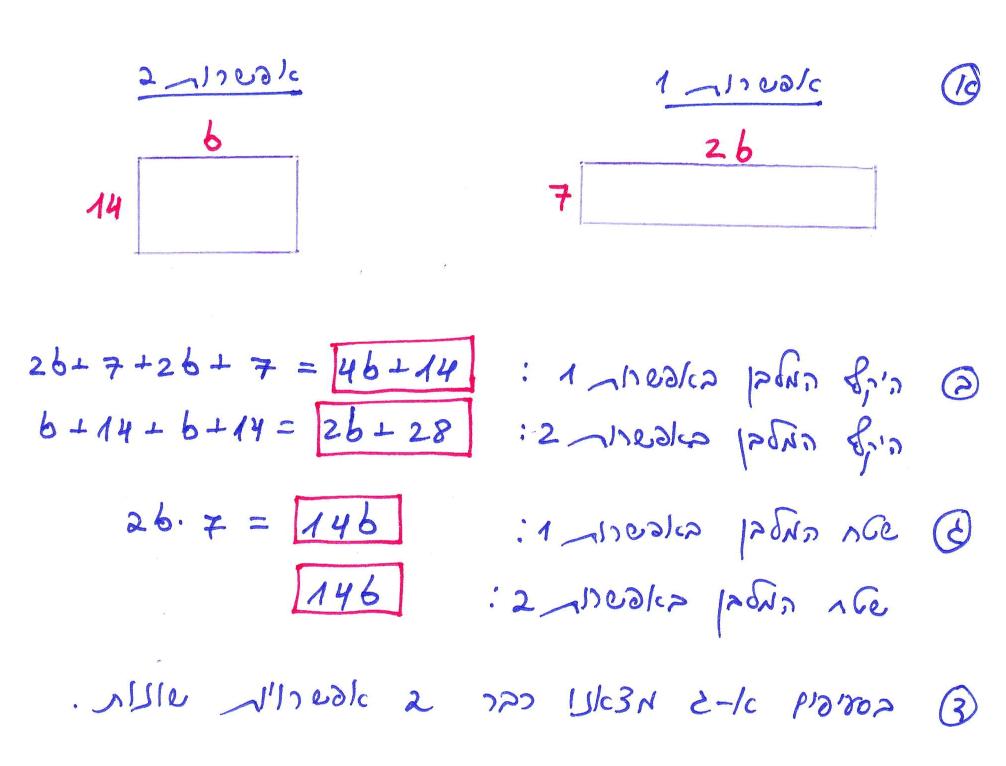 א אפשרות 1 אפשרות 2
2b b
7 14
ב היקף המלבן באפשרות 1 : 2b + 7 + 2b + 7 = 4b + 14
היקף המלבן באפשרות 2 : b + 14 + b + 14 = 2b + 28
ג שטח המלבן באפשרות 1 : 2b · 7 = 14b
שטח המלבן באפשרות 2 : 14b
ד בסעיפים א-ג מצאנו כבר 2 אפשרויות שונות .